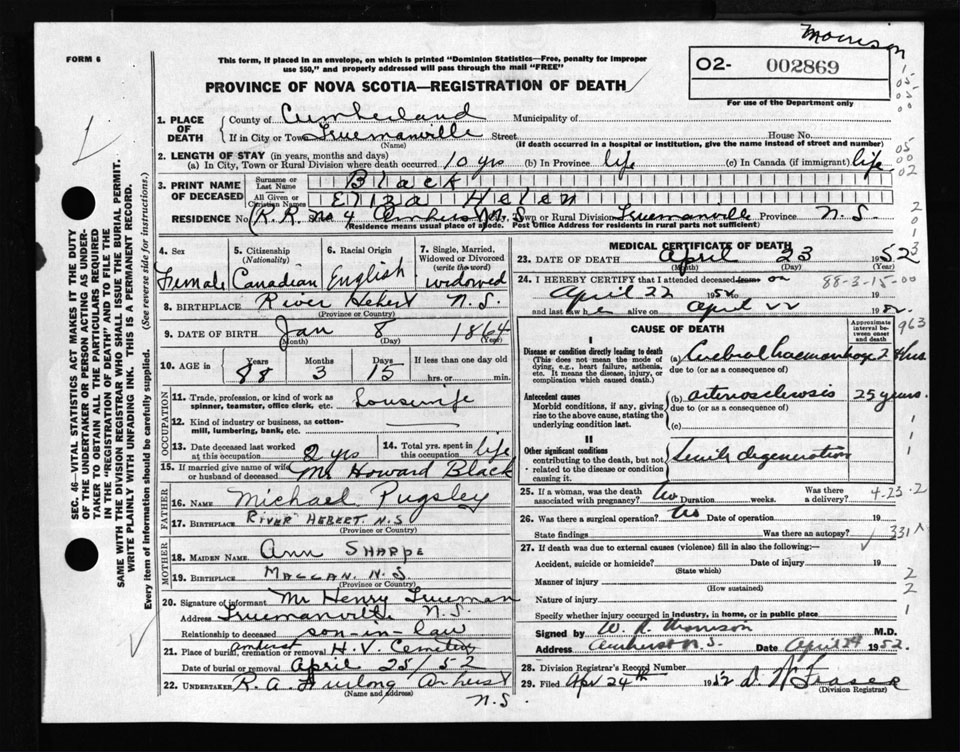 Morrison
FORM 6
This form, if placed in an envelope, on which is printed "Dominion Statistics—Free, penalty for improper
use $50," and properly addressed will pass through the mail "FREE"
02- 002869
PROVINCE OF NOVA SCOTIA—REGISTRATION OF DEATH
For use of the Department only
1. PLACE OF DEATH
County of Cumberland Municipality of
If in City or Town Truemanville Street House No.
(Name) (If death occurred in a hospital or institution, give the name instead of street and number)
2. LENGTH OF STAY (in years, months and days)
(a) In City, Town or Rural Division where death occurred 10 yrs (b) In Province life (c) In Canada (if immigrant) life
3. PRINT NAME OF DECEASED
Surname or Last Name Black
All Given or Christian Names Eliza Helen
RESIDENCE No. R.R. No 4 Amherst N.S. City, Town or Rural Division Truemanville Province N.S.
(Residence means usual place of abode. Post Office Address for residents in rural parts not sufficient)
4. Sex Female
5. Citizenship (Nationality) Canadian
6. Racial Origin English
7. Single, Married, Widowed or Divorced (write the word) widowed
8. BIRTHPLACE River Hebert N.S.
(Province or Country)
9. DATE OF BIRTH Jan 8 1864
(Month) (Day) (Year)
10. AGE in Years 88 Months 3 Days 15 If less than one day old
hrs. or min.
OCCUPATION
11. Trade, profession, or kind of work as
spinner, teamster, office clerk, etc. Housewife
12. Kind of industry or business, as cotton-
mill, lumbering, bank, etc. —
13. Date deceased last worked
at this occupation 2 yrs
14. Total yrs. spent in
this occupation life
15. If married give name of wife
or husband of deceased Mr Howard Black
FATHER
16. NAME Michael Pugsley
17. BIRTHPLACE RIVER HEBERT N.S
(Province or Country)
MOTHER
18. MAIDEN NAME Ann SHARPE
19. BIRTHPLACE MACCAN. N.S.
(Province or Country)
20. Signature of informant Mr Henry Trueman
Address Truemanville N.S.
Relationship to deceased son-in-law
21. Place of burial, cremation or removal Amherst H.V. Cemetery
Date of burial or removal April 25/52
22. UNDERTAKER R. A. Furlong Amherst
(Name and address)
N.S.
MEDICAL CERTIFICATE OF DEATH
23. DATE OF DEATH April 23 1952
(Month) (Day) (Year)
24. I HEREBY CERTIFY that I attended deceased from on
April 22 1952 to 19
and last saw h er alive on April 22 1952
88-3-15-00
CAUSE OF DEATH
Approximate interval between onset and death
I
Disease or condition directly leading to death
(This does not mean the mode of
dying, e.g., heart failure, asthenia,
etc. It means the disease, injury, or
complication which caused death.)
(a) Cerebral haemorrhage 2 days
due to (or as a consequence of)
Antecedent causes
Morbid conditions, if any, giving
rise to the above cause, stating the
underlying condition last.
(b) arteriosclerosis 25 years
due to (or as a consequence of)
(c)
II
Other significant conditions
contributing to the death, but not
related to the disease or condition
causing it.
Senile degeneration
25. If a woman, was the death
associated with pregnancy? No Duration weeks. Was there a delivery?
4-23-2
26. Was there surgical operation? No Date of operation 19
State findings Was there an autopsy?
331
27. If death was due to external causes (violence) fill in also the following:—
Accident, suicide or homicide? Date of injury 19
(State which)
Manner of injury
(How sustained)
Nature of injury
Specify whether injury occurred in industry, in home, or in public place
Signed by W. R. Morrison M.D.
Address Amherst N.S. Date April 24 1952
28. Division Registrar's Record Number
29. Filed Apr 24th 1952 D W Fraser
(Division Registrar)
SEC. 46—VITAL STATISTICS ACT MAKES IT THE DUTY
OF THE UNDERTAKER OR PERSON ACTING AS UNDER-
TAKER TO OBTAIN ALL THE PARTICULARS REQUIRED
IN THE "REGISTRATION OF DEATH" AND TO FILE THE
SAME WITH THE DIVISION REGISTRAR WHO SHALL ISSUE THE BURIAL PERMIT.
WRITE PLAINLY WITH UNFADING INK. THIS IS A PERMANENT RECORD.
Every item of information should be carefully supplied. (See reverse side for instructions.)